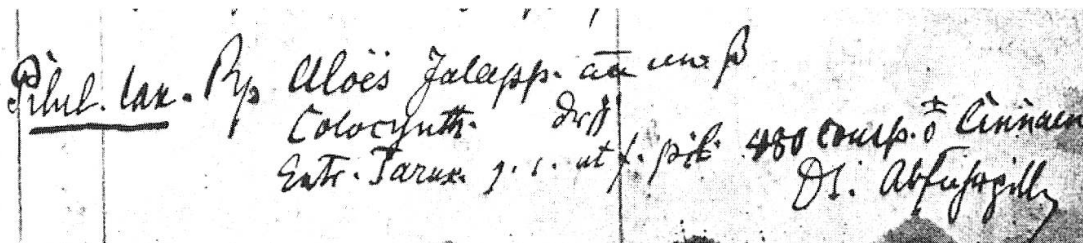 Pilul. lax. Rp Aloës Jalapp. āā unc β
Colocynth. drβ
Extr. Tarax. q. s. ut f. pil. 480 consp. Cinnam
DS. Abführpillen